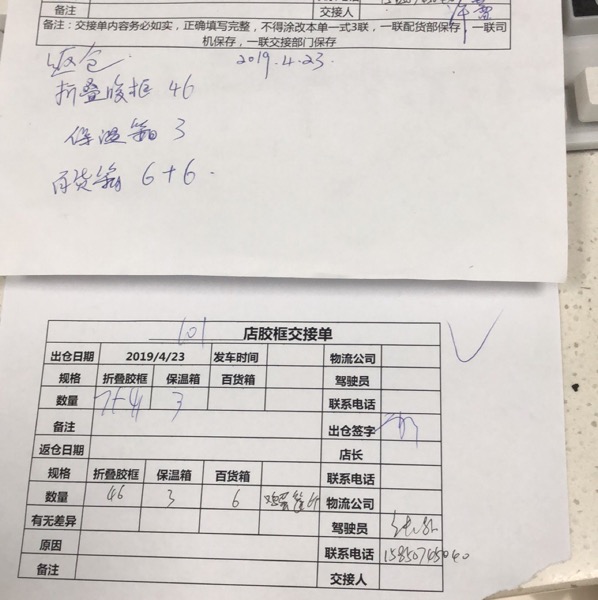 备注 交接人
备注：交接单内容务必如实，正确填写完整，不得涂改本单一式3联，一联配货部保存，一联司
机保存，一联交接部门保存
返仓 2019.4.23
折叠胶框 46
保温箱 3
百货箱 6+6
101 店胶框交接单
出仓日期 2019/4/23 发车时间 物流公司
规格 折叠胶框 保温箱 百货箱 驾驶员
数量 3 联系电话
备注 出仓签字
返仓日期 店长
规格 折叠胶框 保温箱 百货箱 联系电话
数量 46 3 6 物流公司
有无差异 驾驶员
原因 联系电话
备注 交接人